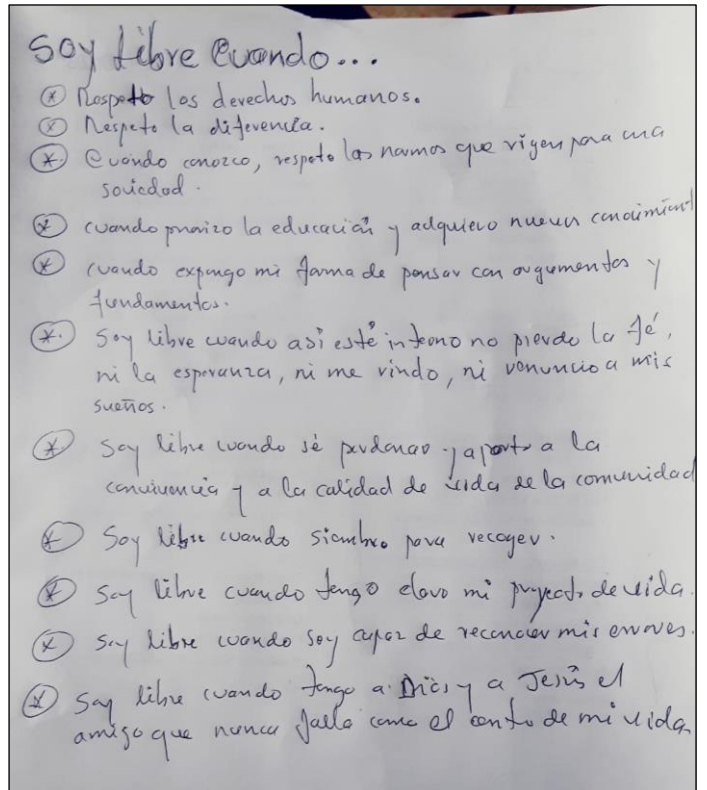 Soy libre Cuando...
* Respeto los derechos humanos.
* Respeto la diferencia.
* Cuando conozco, respeto las normas que rigen para una
sociedad.
* cuando la educación y adquiero nuevos conocimient
* cuando expongo mi forma de pensar con argumentos y
fundamentos.
* Soy libre cuando asi esté interno no pierdo la fé,
ni la esperanza, ni me rindo, ni renuncio a mis
sueños.
* Soy libre cuando sé perdonar y aporto a la
convivencia y a la calidad de vida de la comunidad
* Soy libre cuando siembro para recoger.
* Soy libre cuando tengo claro mi proyecto de vida.
* Soy libre cuando soy capaz de reconocer mis errores.
* Soy libre cuando tengo a Dios y a Jesús el
amigo que nunca falla como el centro de mi vida.